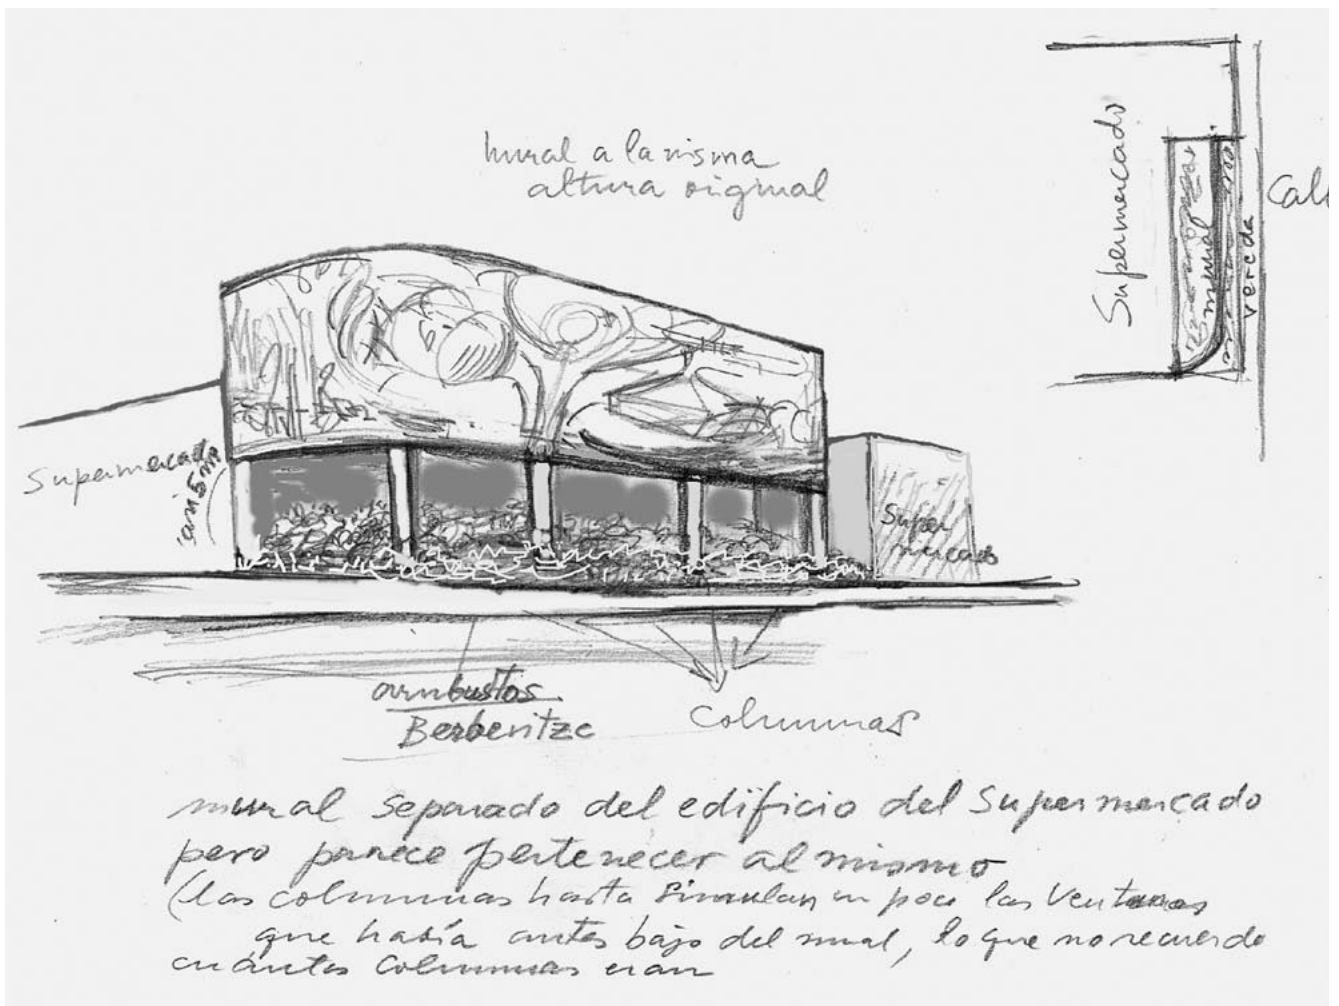 mural a la misma
altura original
Supermercado
mural
vereda
Call
Supermercado
casi 5m
Super
mercado
arnbustos
Berberitze
columnas
mural separado del edificio del Supermercado
pero parece pertenecer al mismo
(las columnas hasta simulan un poco las ventanas
que había antes bajo del mural, lo que no recuerdo
cuántas columnas eran